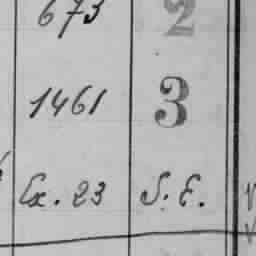 673 2
1461 3
Ex. 23 S. E.